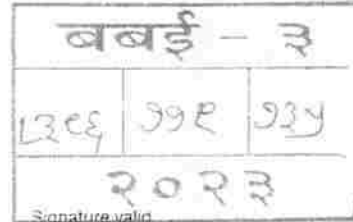 बबई - ३
८३९६ ११९ १३५
२०२३
Signature valid